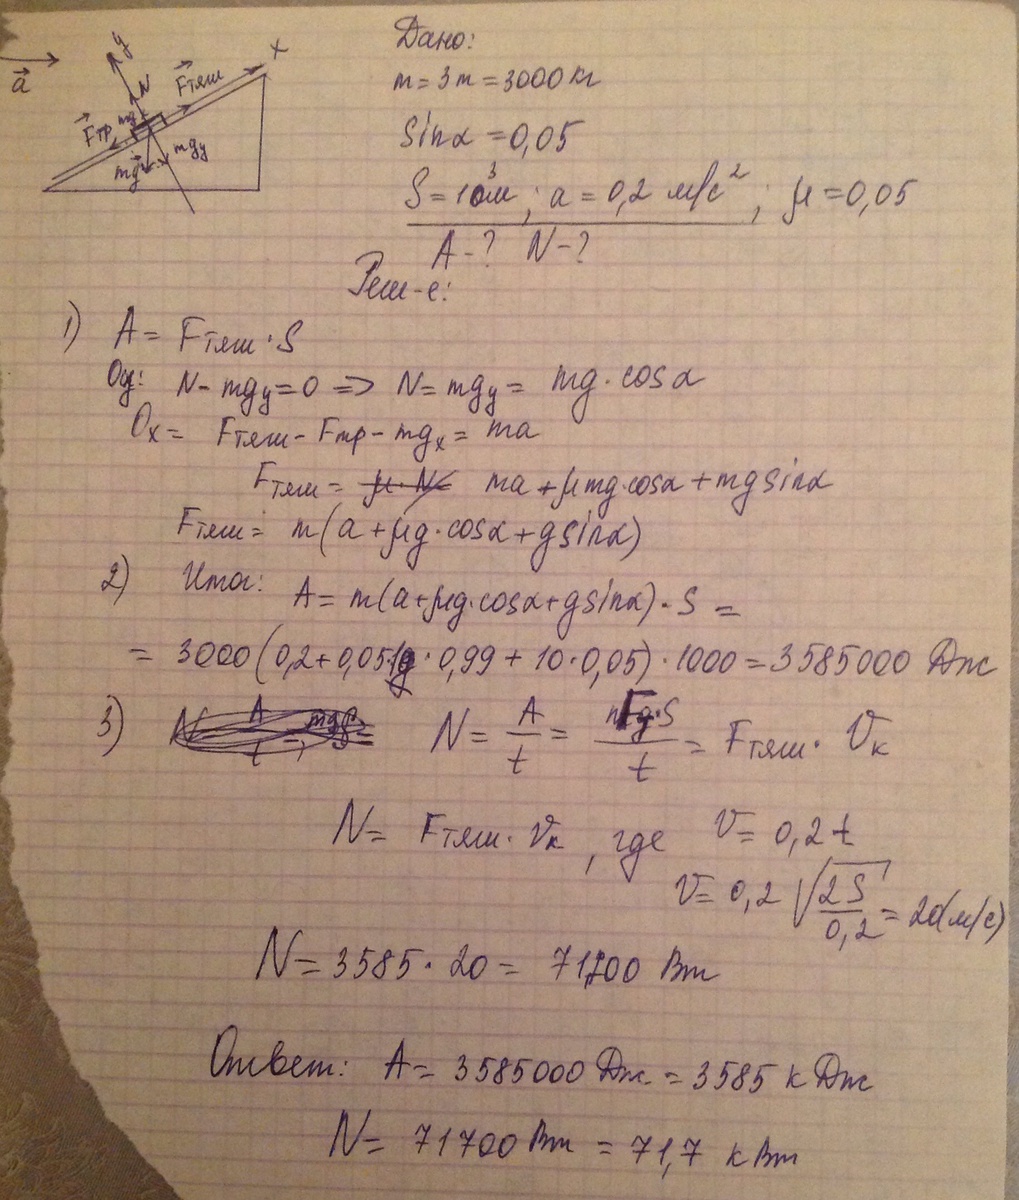 y
x
a
N
Fтяш
Fтр
mgx
mgy
mg
Дано:
m = 3т = 3000 кг
Sinα = 0,05
S = 10³м ; a = 0,2 м/с² ; μ = 0,05
A - ? N - ?
Реш-е:
1) A = Fтяш · S
Oy: N - mgy = 0 => N = mgy = mg · cosα
Ox = Fтяш - Fтр - mgx = ma
Fтяш = ma + μmg·cosα + mgsinα
Fтяш = m(a + μg·cosα + gsinα)
2) Итог: A = m(a + μg·cosα + gsinα) · S =
= 3000 (0,2 + 0,05·10 · 0,99 + 10·0,05) · 1000 = 3585000 Дж
3) N = A/t = F·S/t = Fтяш · Vк
N = Fтяш · Vк , где V = 0,2t
V = 0,2 √2S/0,2 = 20(м/с)
N = 3585 · 20 = 71700 Вт
Ответ: A = 3585000 Дж = 3585 кДж
N = 71700 Вт = 71,7 кВт